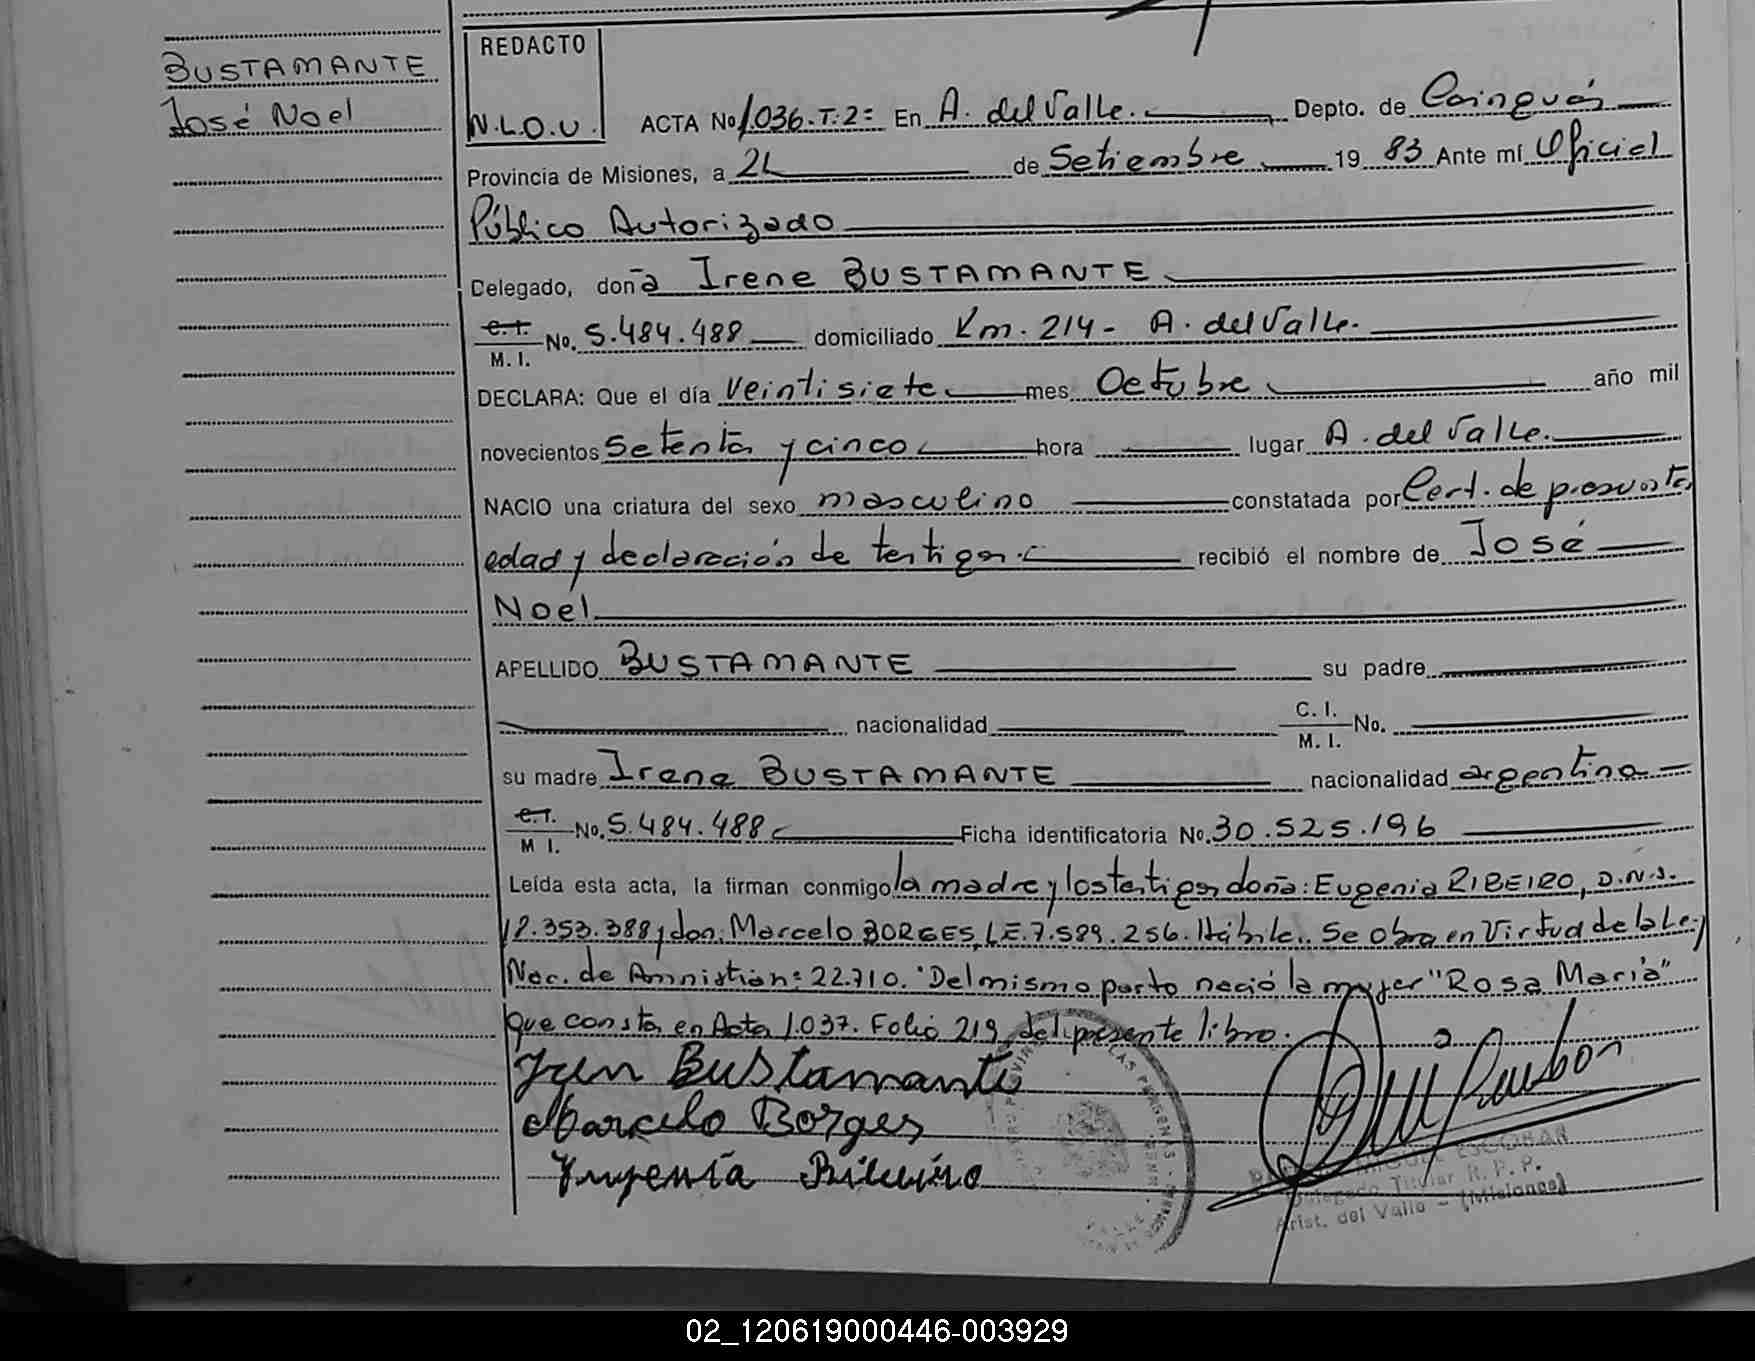 BUSTAMANTE
José Noel
REDACTO
N.L.O.U.
ACTA No 1.036.T:2= En A. del Valle. Depto. de Cainguás
Provincia de Misiones, a 21 de Setiembre 19 83 Ante mí Oficial
Público Autorizado
Delegado, doña Irene BUSTAMANTE
C.I. M. I. No. 5.484.488 domiciliado Km. 214 - A. del Valle.
DECLARA: Que el día veintisiete mes Octubre año mil
novecientos setenta y cinco hora lugar A. del Valle.
NACIO una criatura del sexo masculino constatada por Cert. de presunta
edad y declaración de testigos. recibió el nombre de José
Noel
APELLIDO BUSTAMANTE su padre
nacionalidad C. I. M. I. No.
su madre Irene BUSTAMANTE nacionalidad argentina
C.I. M I. No. 5.484.488 Ficha identificatoria No. 30.525.196
Leída esta acta, la firman conmigo la madre y los testigos doña: Eugenia RIBEIRO, D.N.I.
12.353.388 y don: Marcelo BORGES, LE. 7.589.256. Hábiles. Se obra en Virtud de la Ley
Nac. de Amnistia n: 22.710. "Del mismo parto nació la mujer "Rosa María"
que consta en Acta 1.037. Folio 219, del presente libro.
Iren Bustamante
Marcelo Borges
Eugenia Ribeiro
ESCOBAR
Delegado Titular R. P. P.
Arist. del Valle - (Misiones)
02_120619000446-003929